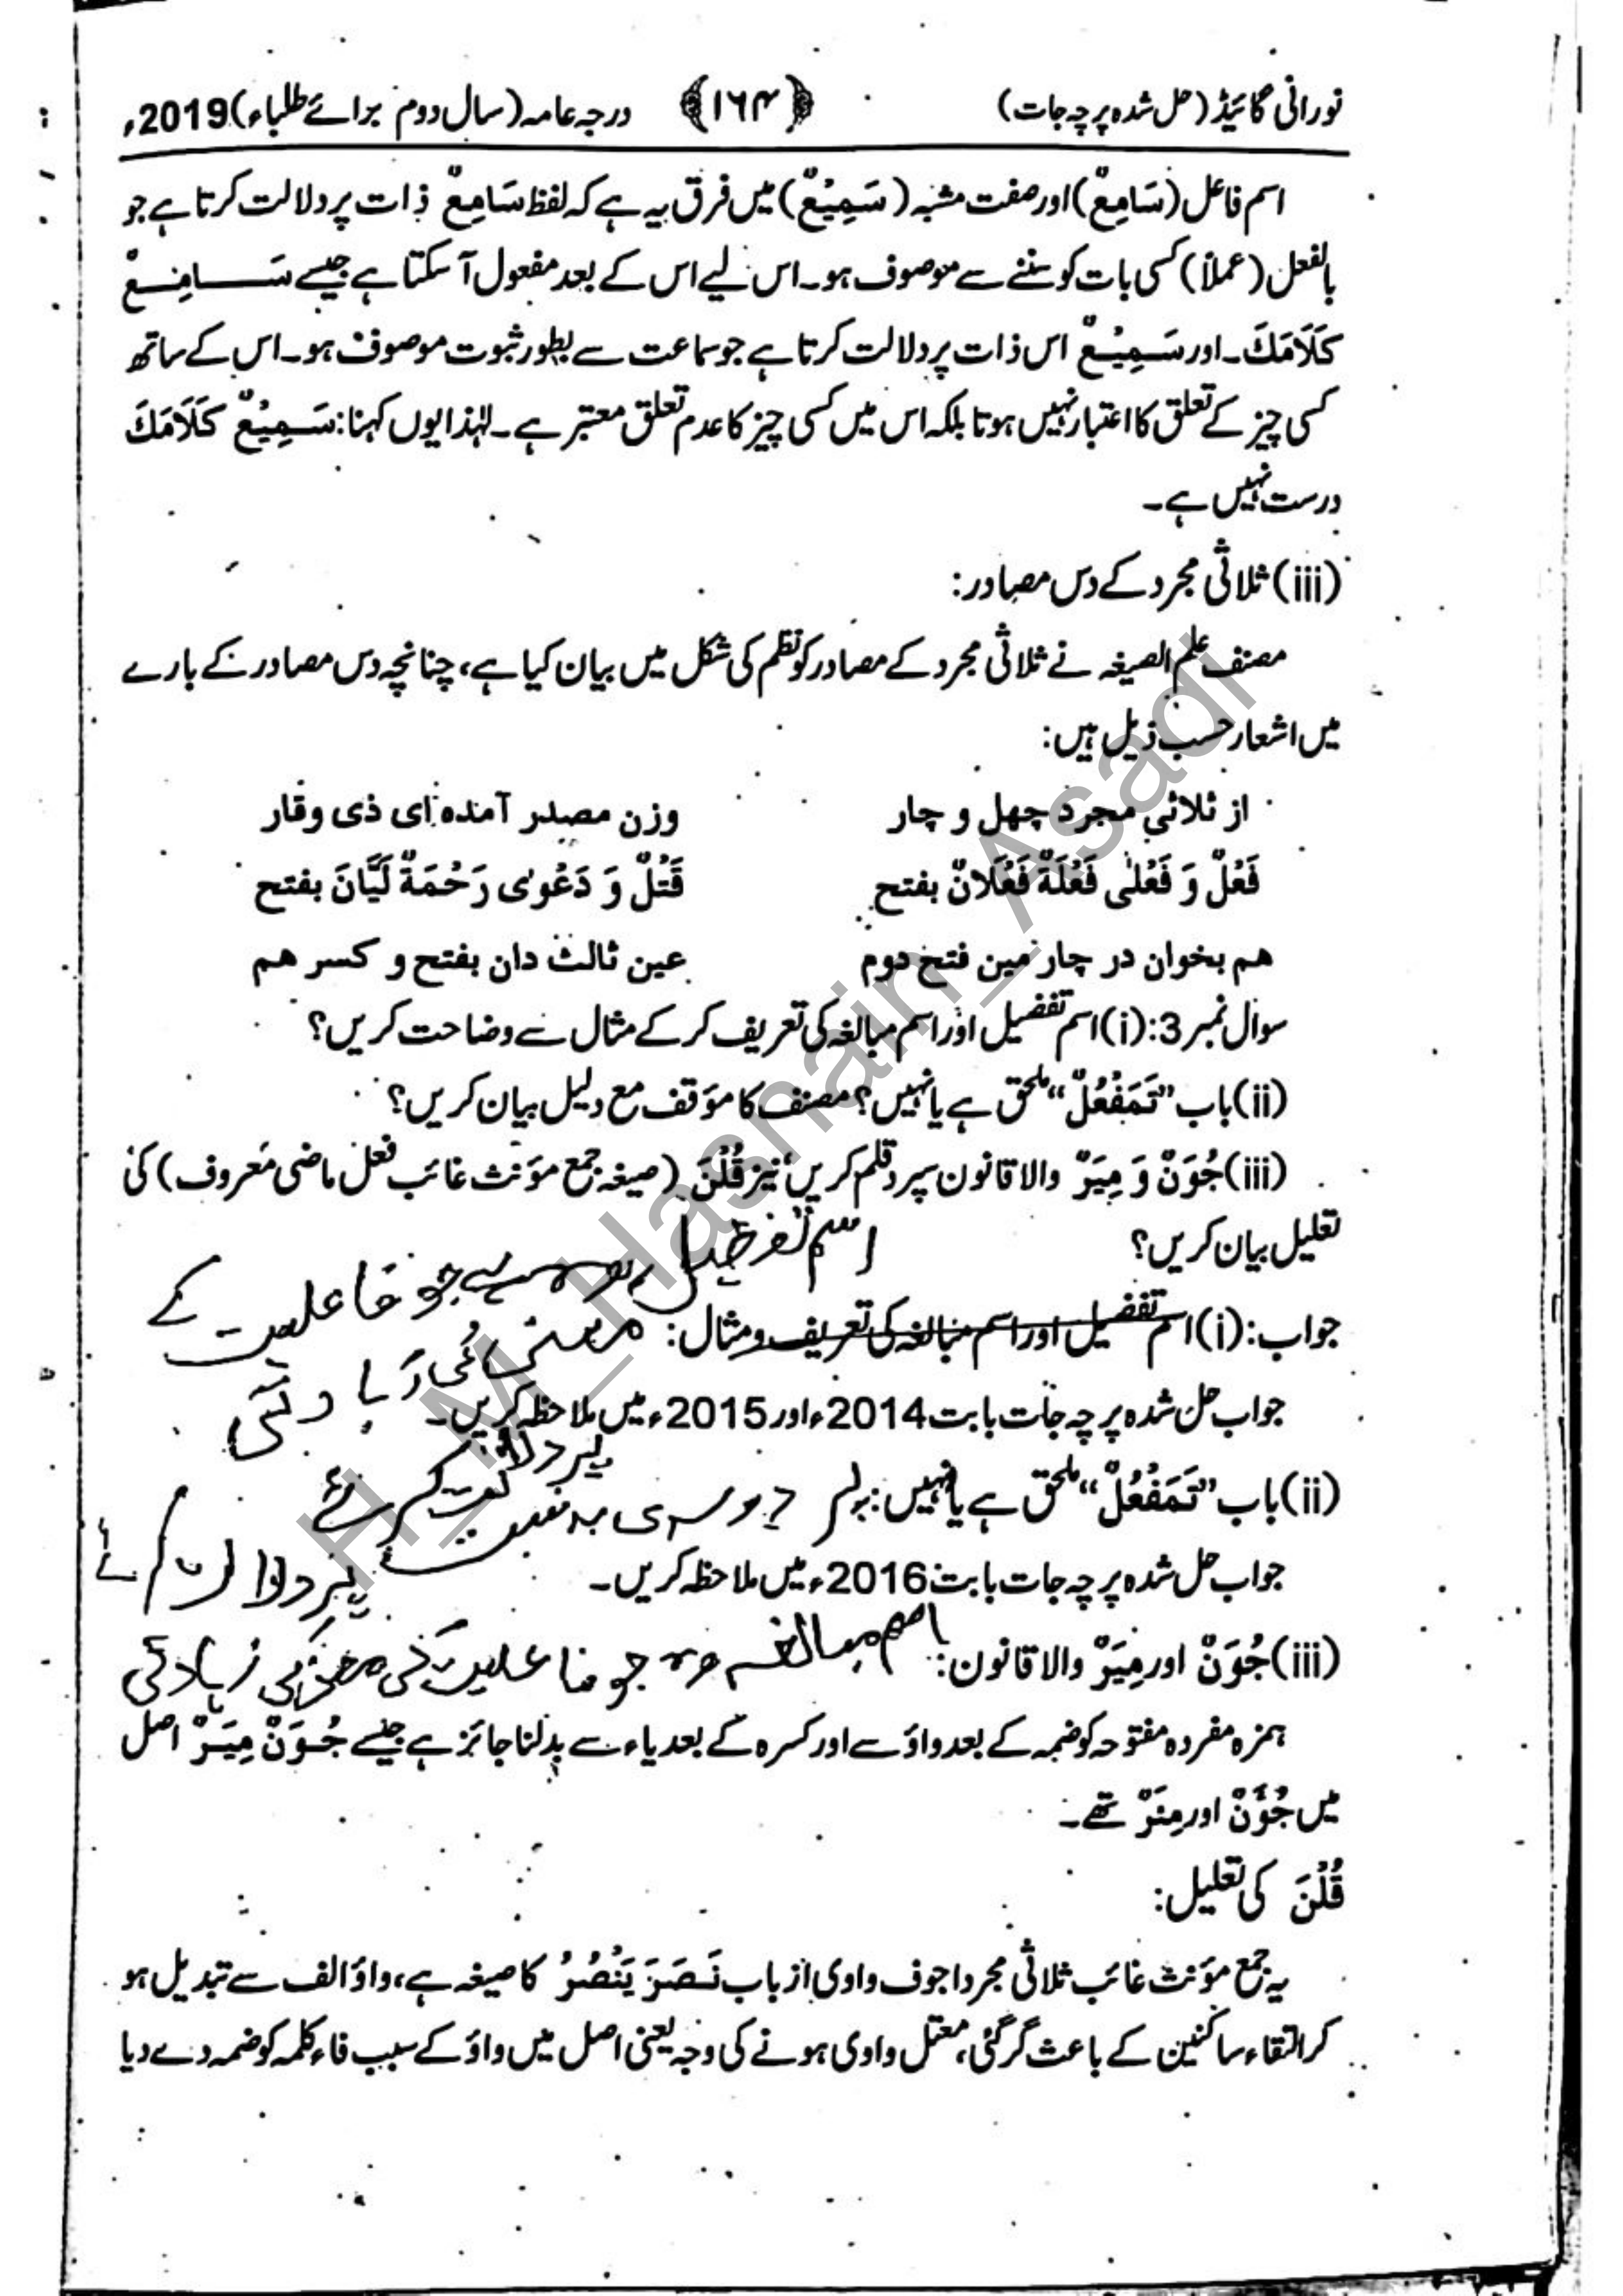 نورانی گائیڈ (حل شدہ پرچہ جات) ﴿۱۶۴﴾ درجہ عامہ (سال دوم برائے طلباء) 2019ء
اسم فاعل (سَامِعٌ) اور صفت مشبہ (سَمِیْعٌ) میں فرق یہ ہے کہ لفظ سَامِعٌ ذات پر دلالت کرتا ہے جو
بالفعل (عملاً) کسی بات کو سننے سے موصوف ہو۔ اس لیے اس کے بعد مفعول آ سکتا ہے جیسے سَامِعٌ
کَلَامَکَ۔ اور سَمِیْعٌ اس ذات پر دلالت کرتا ہے جو سماعت سے بطور ثبوت موصوف ہو۔ اس کے ساتھ
کسی چیز کے تعلق کا اعتبار نہیں ہوتا بلکہ اس میں کسی چیز کا عدم تعلق معتبر ہے۔ لہٰذا یوں کہنا: سَمِیْعٌ کَلَامَکَ
درست نہیں ہے۔
(iii) ثلاثی مجرد کے دس مصادر:
مصنف علم الصیغہ نے ثلاثی مجرد کے مصادر کو نظم کی شکل میں بیان کیا ہے، چنانچہ دس مصادر کے بارے
میں اشعار حسب ذیل ہیں:
از ثلاثی مجرد چھل و چار وزن مصدر آمدہ ای ذی وقار
فَعْلٌ وَ فَعْلٰی فَعْلَۃٌ فَعْلَانٌ بفتح قَتْلٌ وَ دَعْوٰی رَحْمَۃٌ لَیَّانَ بفتح
ھم بخوان در چار مین فتح دوم عین ثالث دان بفتح و کسر ھم
سوال نمبر 3: (i) اسم تفضیل اور اسم مبالغہ کی تعریف کر کے مثال سے وضاحت کریں؟
(ii) باب ”تَمَفْعُلٌ“ ملحق ہے یا نہیں؟ مصنف کا مؤقف مع دلیل بیان کریں؟
(iii) جُوَنٌ وَ مِیَرٌ والا قانون سپرد قلم کریں نیز قُلْنَ (صیغہ جمع مؤنث غائب فعل ماضی معروف) کی
تعلیل بیان کریں؟
اسم تفضیل وہ ہے جو فاعلیت کے
جواب: (i) اسم تفضیل اور اسم مبالغہ کی تعریف و مثال:
معنی کی زیادتی
جواب حل شدہ پرچہ جات بابت 2014ء اور 2015ء میں ملاحظہ کریں۔
پر دلالت کرے
(ii) باب ”تَمَفْعُلٌ“ ملحق ہے یا نہیں:
دوسری بہ نسبت
جواب حل شدہ پرچہ جات بابت 2016ء میں ملاحظہ کریں۔
پر دلالت کرے
(iii) جُوَنٌ اور مِیَرٌ والا قانون:
اسم مبالغہ وہ جو فاعلیت کی معنی کی زیادتی
ہمزہ مفردہ مفتوحہ کو ضمہ کے بعد واؤ سے اور کسرہ کے بعد یاء سے بدلنا جائز ہے جیسے جُوَنٌ مِیَرٌ اصل
میں جُؤَنٌ اور مِئَرٌ تھے۔
قُلْنَ کی تعلیل:
یہ جمع مؤنث غائب ثلاثی مجرد اجوف واوی از باب نَصَرَ یَنْصُرُ کا صیغہ ہے، واؤ الف سے تبدیل ہو
کر التقاء ساکنین کے باعث گر گئی، معتل واوی ہونے کی وجہ یعنی اصل میں واؤ کے سبب فاء کلمہ کو ضمہ دے دیا
H_M_Hasnain_Asadi